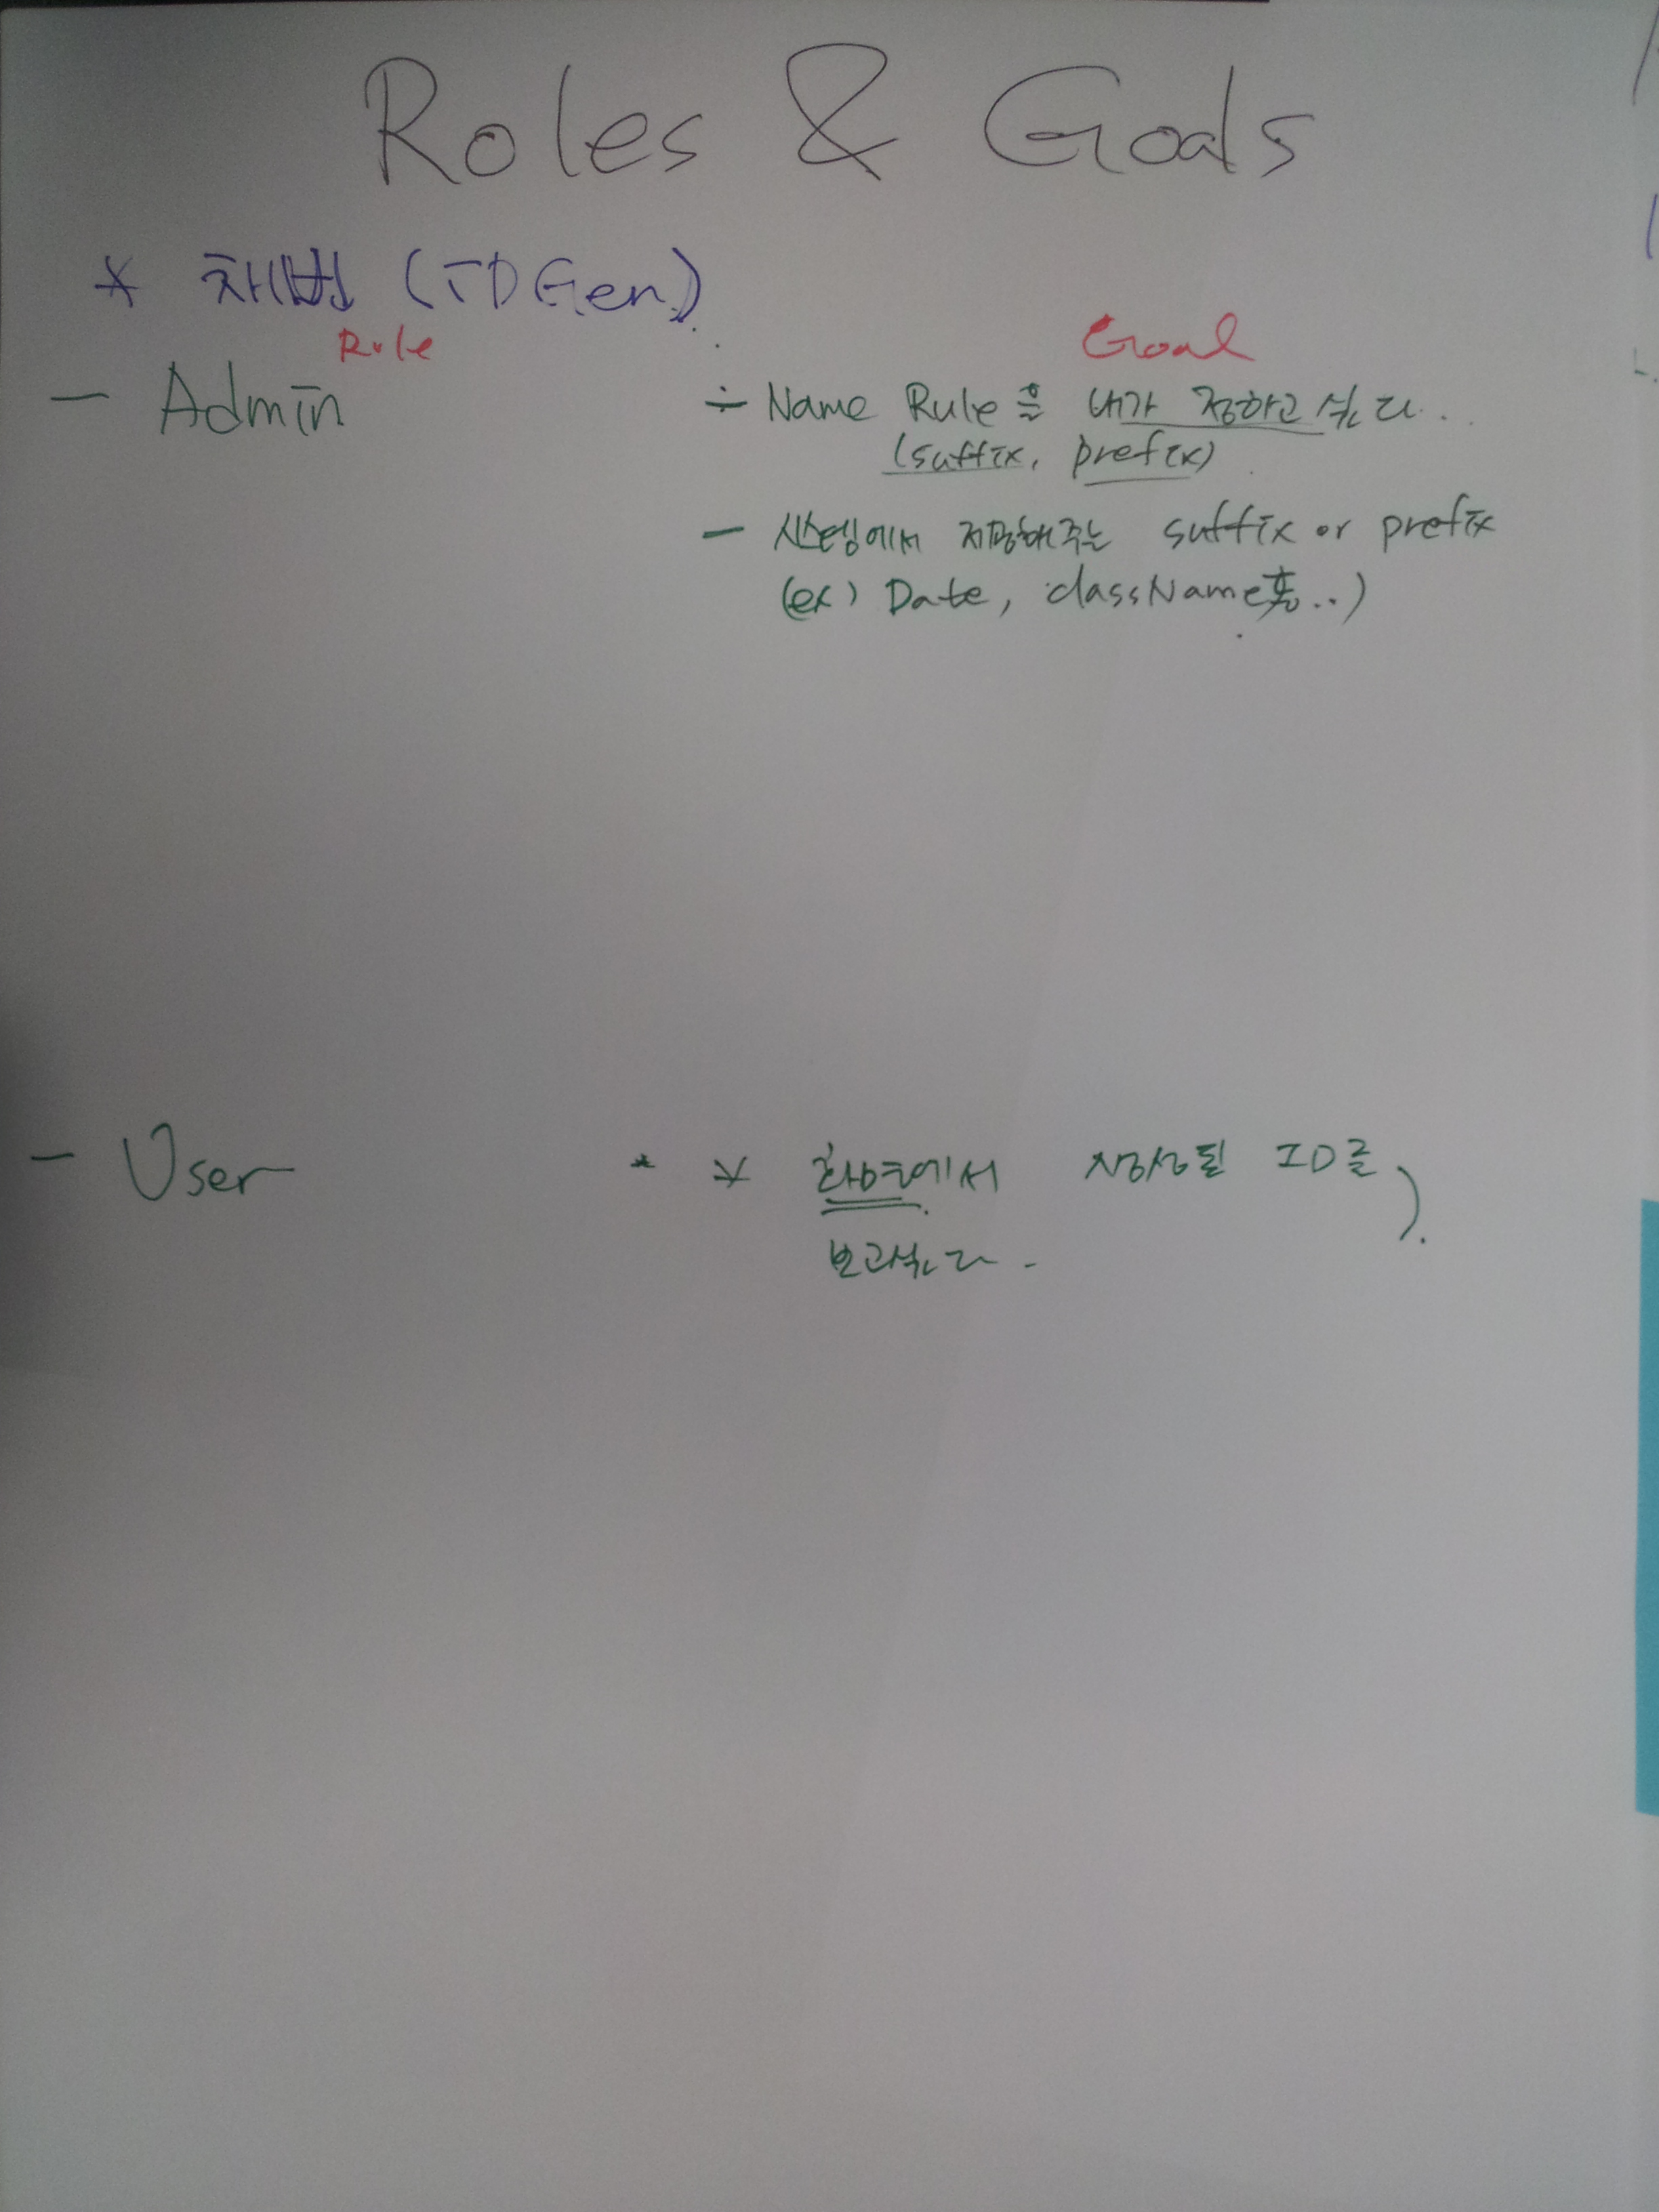 Roles & Goals
* 채번 (IDGen)
Role
Goal
- Admin
- Name Rule을 내가 정하고 싶다.
(suffix, prefix)
- 시스템에서 지정해주는 suffix or prefix
(ex) Date, className 등..)
- User
* * 화면에서 생성될 ID를
보고싶다.